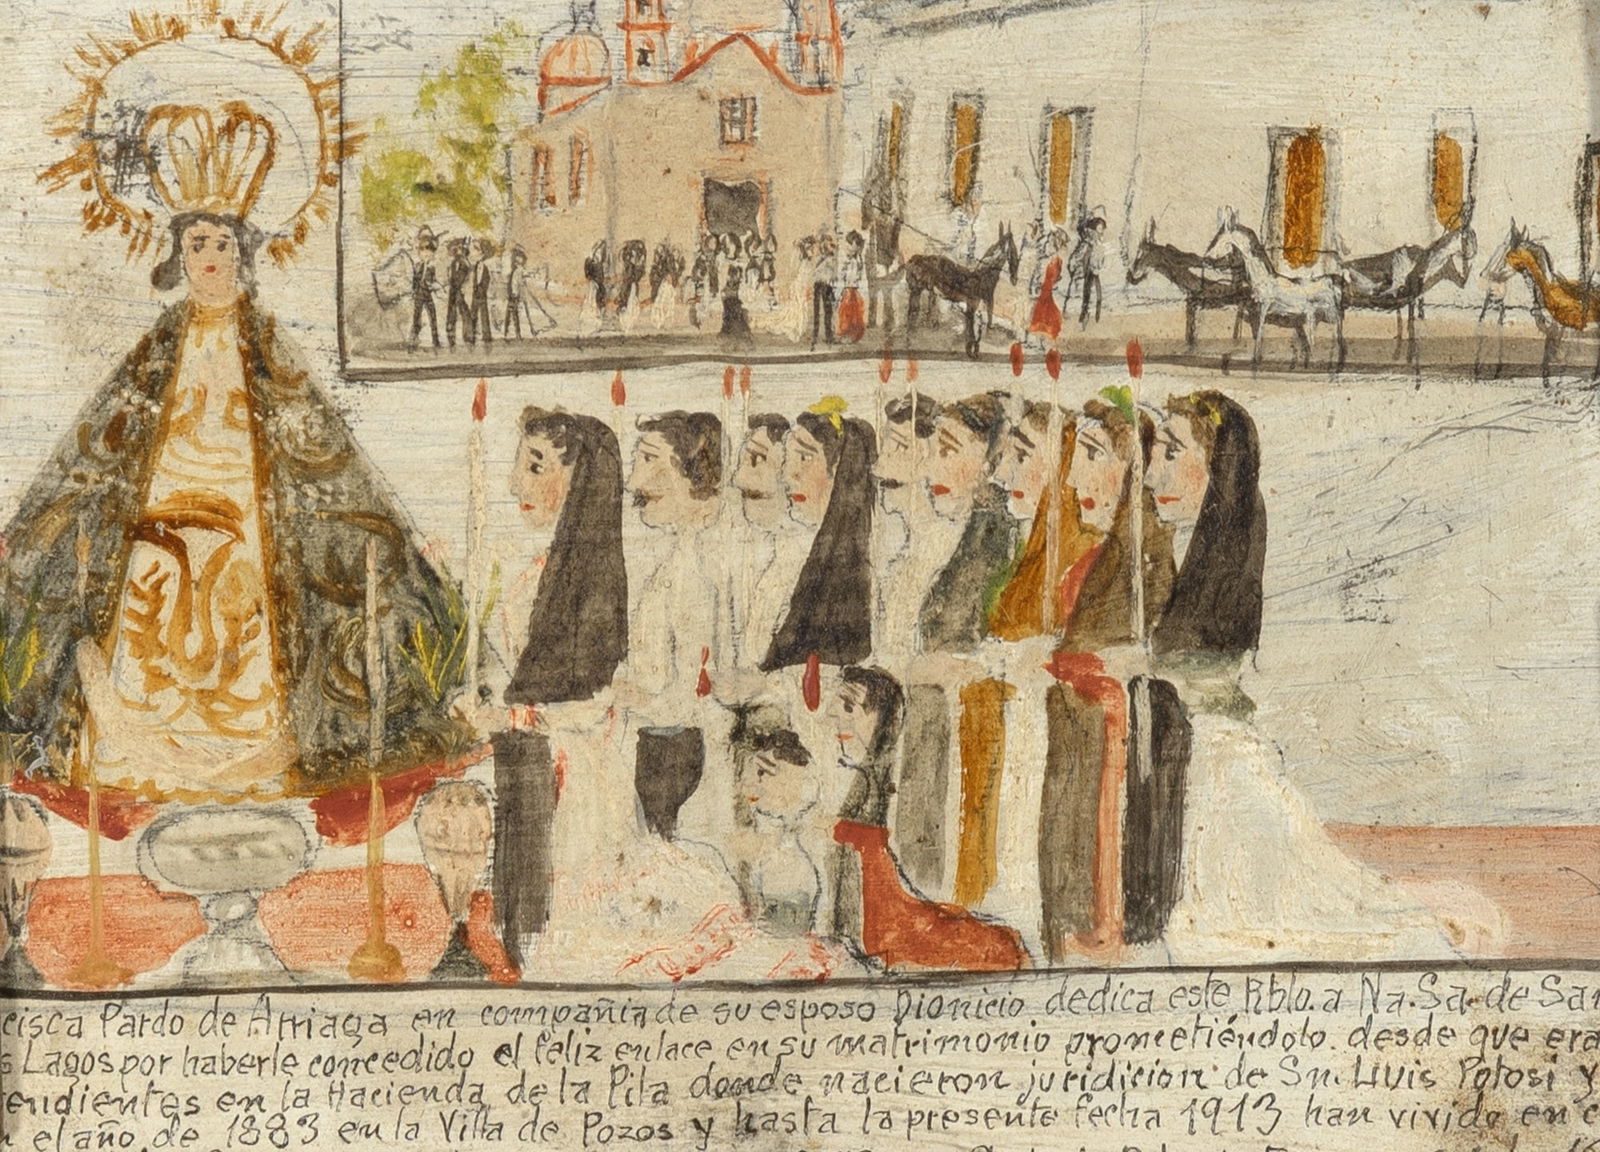 cisca Pardo de Arriaga en compañia de su esposo Dionicio dedica este Rblo. a Na. Sa. de San
s Lagos por haberle concedido el feliz enlace en su matrimonio prometiéndolo. desde que era
endientes en la Hacienda de la Pila donde nacieron juridicion de Sn. LUis Potosi y
n el año de 1883 en la Villa de Pozos y hasta la presente fecha 1913 han vivido en c